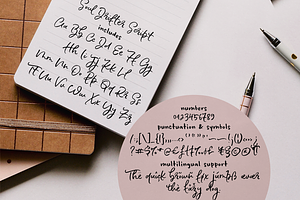 Soul Drifter Script
includes
Aa Bb Cc Dd Ee Ff Gg
Hh Ii Jj Kk Ll
Mm Nn Oo Pp Qq Rr Ss
Tt Uu Vv Ww Xx Yy Zz
numbers
0123456789
punctuation & symbols
multilingual support
The quick brown fox jumps over
the lazy dog